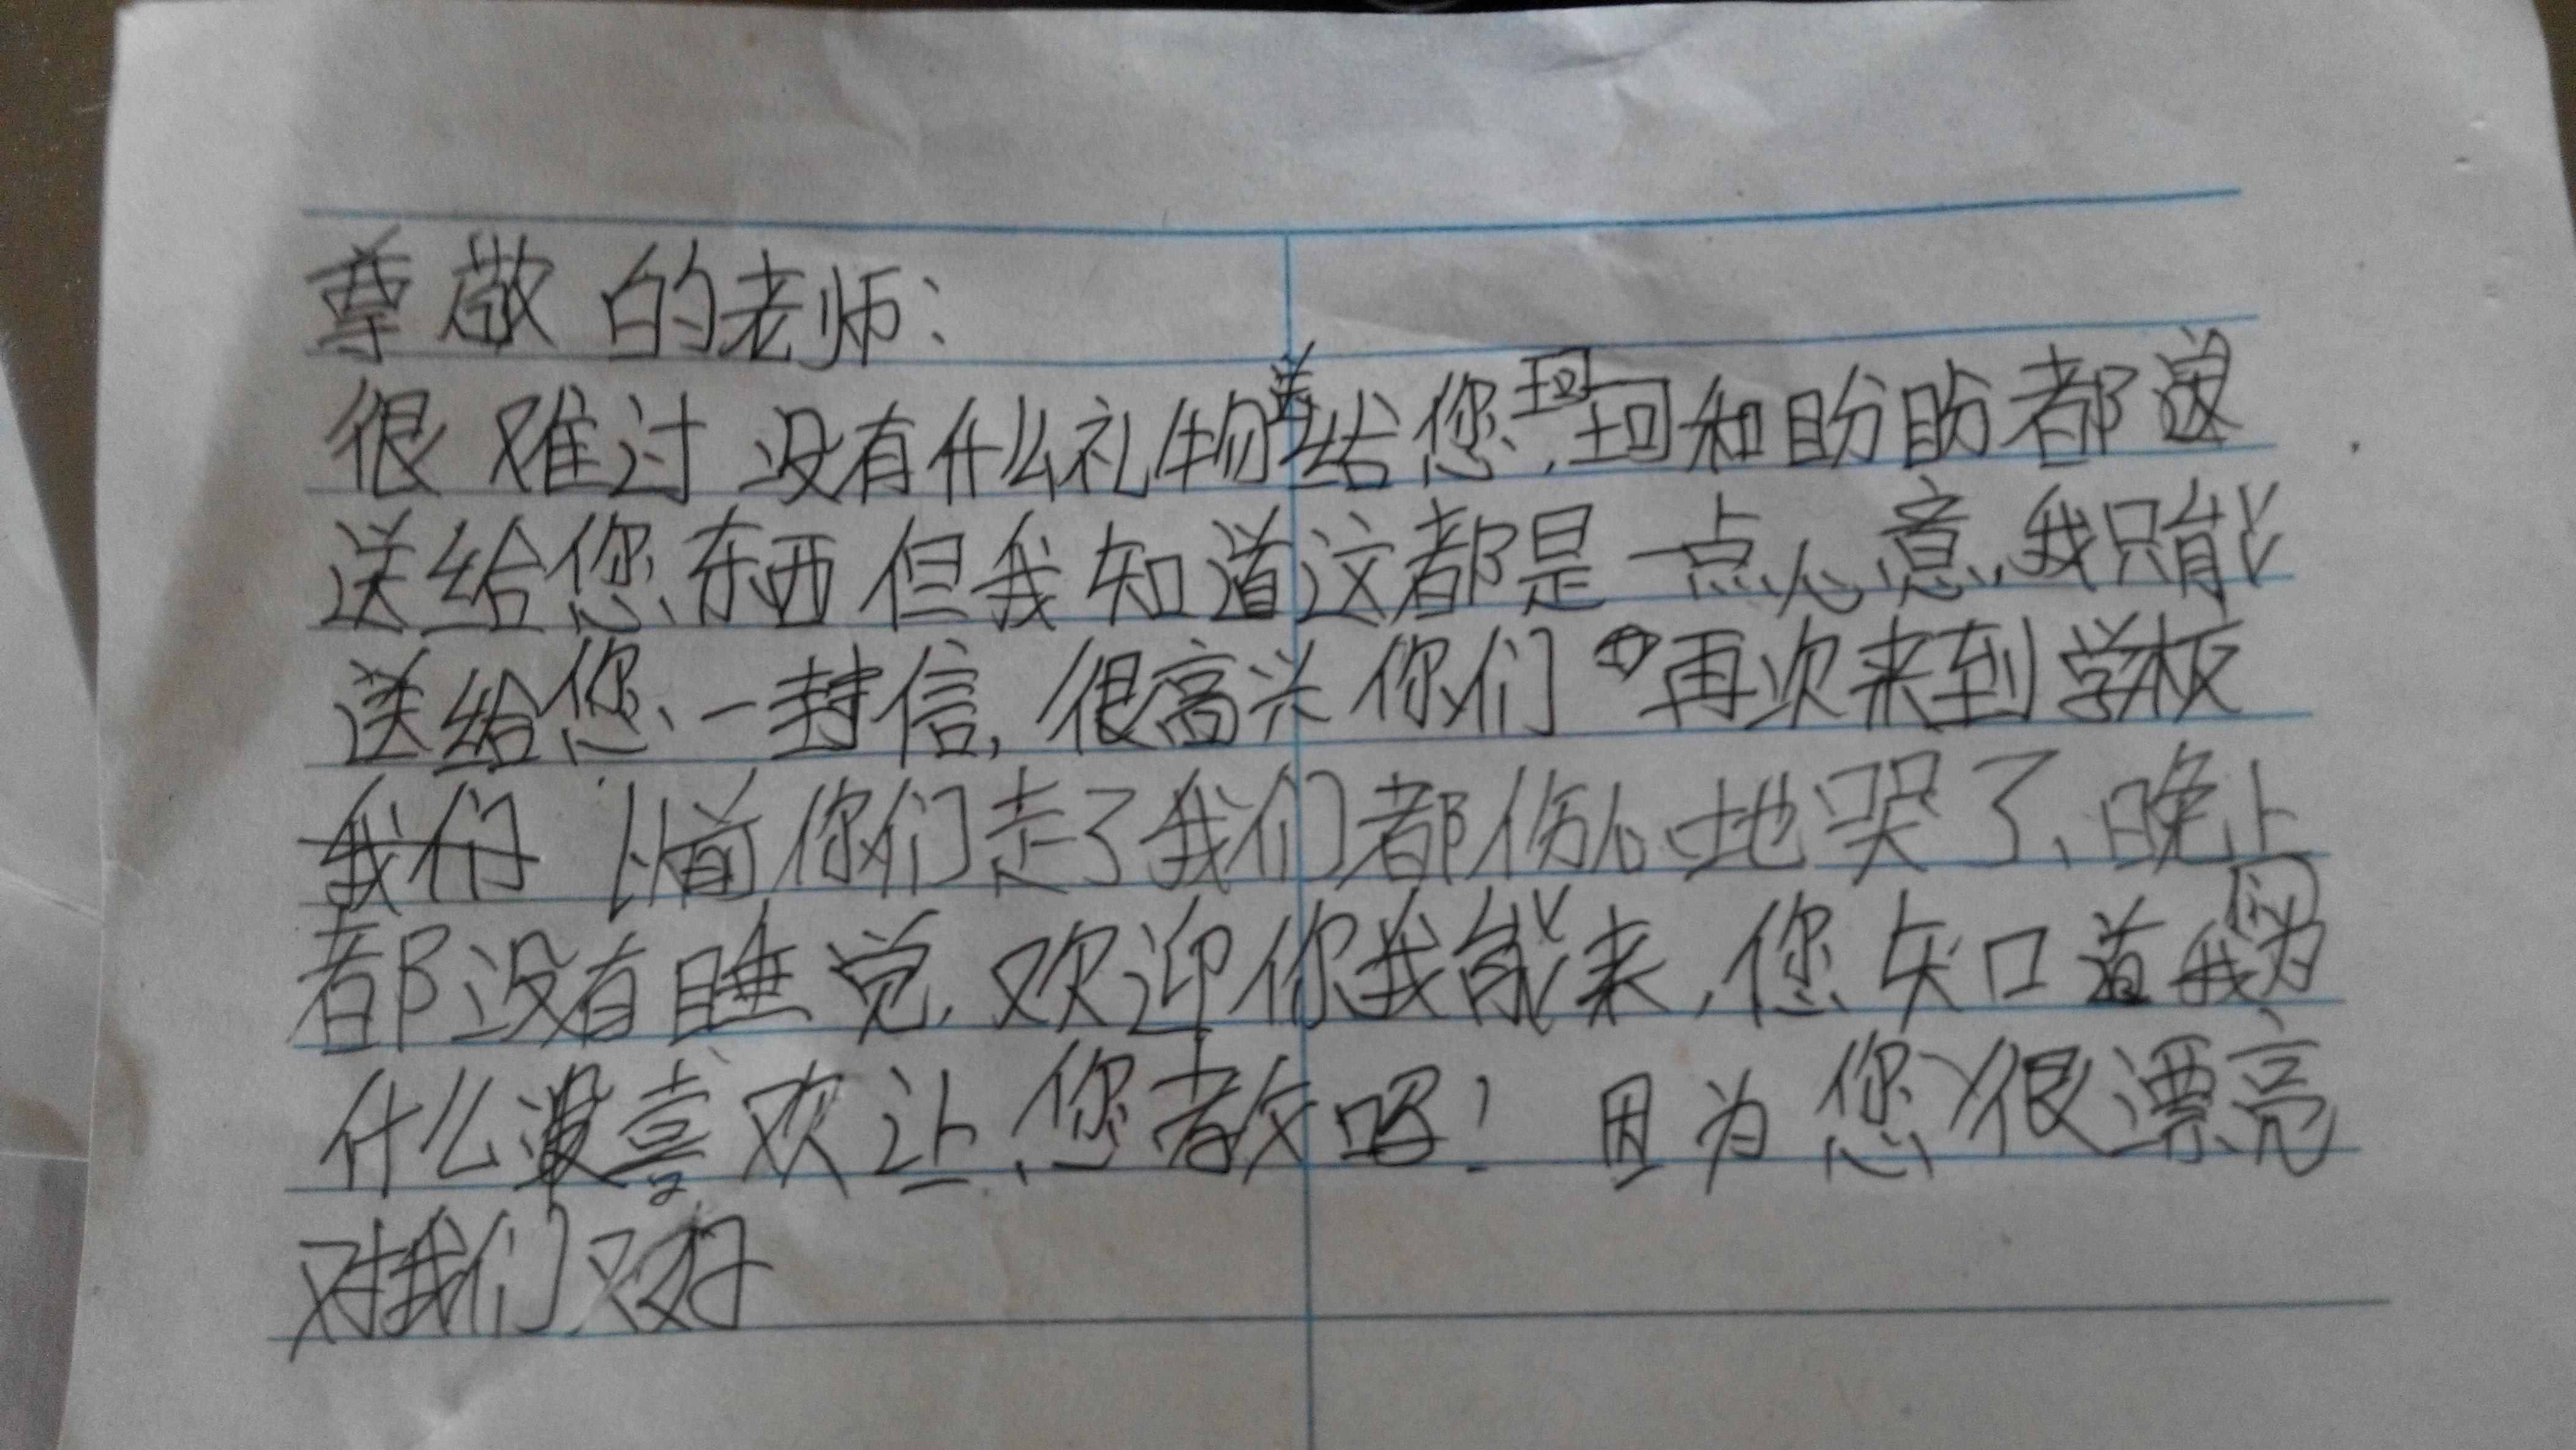 尊敬的老师：
很难过没有什么礼物送给您，和盼盼都送
送给您东西但我知道这都是一点心意，我只能
送给您一封信，很高兴你们再次来到学校
我们 以前你们走了我们都伤心地哭了、晚上
都没有睡觉，欢迎你我能来，您知道我们为
什么喜欢让您教吗！因为您很漂亮
对我们又好